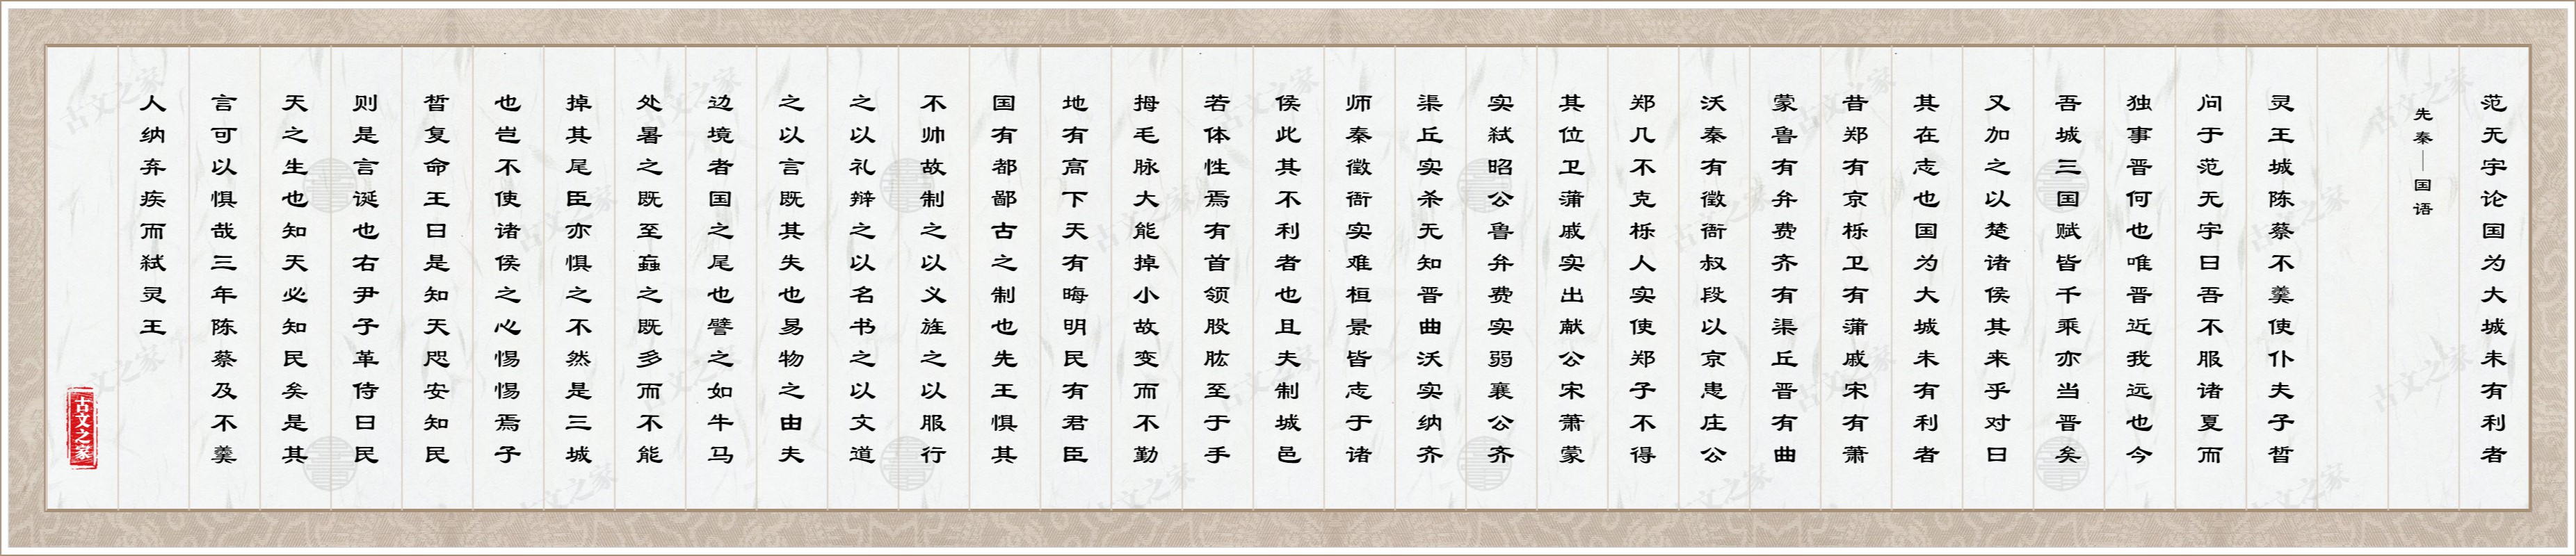 范无宇论国为大城未有利者
先秦—国语
灵王城陈蔡不羹使仆夫子晳
问于范无宇曰吾不服诸夏而
独事晋何也唯晋近我远也今
吾城三国赋皆千乘亦当晋矣
又加之以楚诸侯其来乎对曰
其在志也国为大城未有利者
昔郑有京栎卫有蒲戚宋有萧
蒙鲁有弁费齐有渠丘晋有曲
沃秦有徵衙叔段以京患庄公
郑几不克栎人实使郑子不得
其位卫蒲戚实出献公宋萧蒙
实弑昭公鲁弁费实弱襄公齐
渠丘实杀无知晋曲沃实纳齐
师秦徵衙实难桓景皆志于诸
侯此其不利者也且夫制城邑
若体性焉有首领股肱至于手
拇毛脉大能掉小故变而不勤
地有高下天有晦明民有君臣
国有都鄙古之制也先王惧其
不帅故制之以义旌之以服行
之以礼辩之以名书之以文道
之以言既其失也易物之由夫
边境者国之尾也譬之如牛马
处暑之既至蝱之既多而不能
掉其尾臣亦惧之不然是三城
也岂不使诸侯之心惕惕焉子
晳复命王曰是知天咫安知民
则是言诞也右尹子革侍曰民
天之生也知天必知民矣是其
言可以惧哉三年陈蔡及不羹
人纳弃疾而弑灵王
古文之家